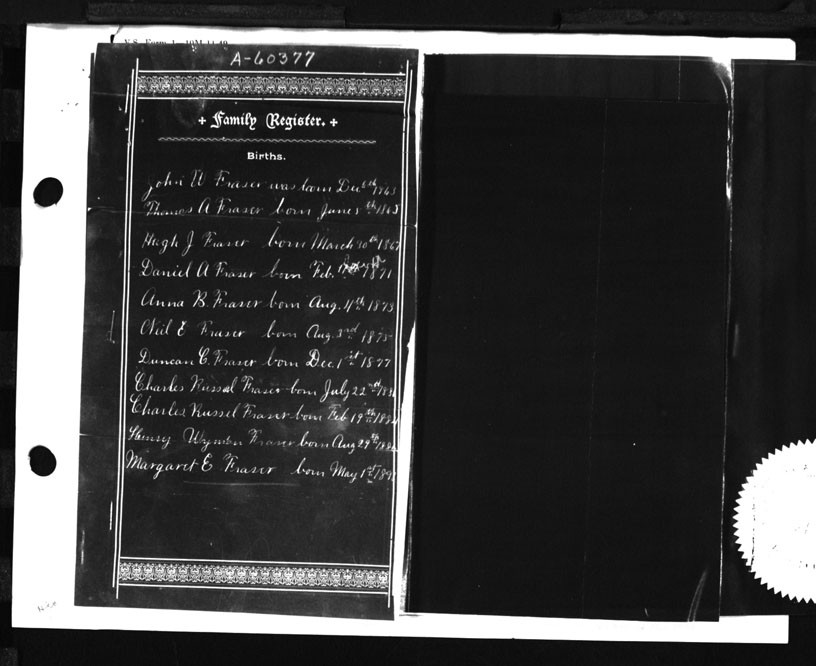 V.S. Form 1—10M-11-49
A-60377
Family Register.
Births.
John W Fraser was born Dec 6th 1863
Thomas A Fraser born June 5th 1865
Hugh J Fraser born March 30th 1867
Daniel A Fraser born Feb. 1871
Anna B. Fraser born Aug. 4th 1873
Neil E Fraser born Aug. 3rd 1875
Duncan C. Fraser born Dec. 1st 1877
Charles Russel Fraser born July 22nd
Charles Russel Fraser born Feb 19th
Henry Wyman Fraser born Aug 29th
Margaret E Fraser born May 1st